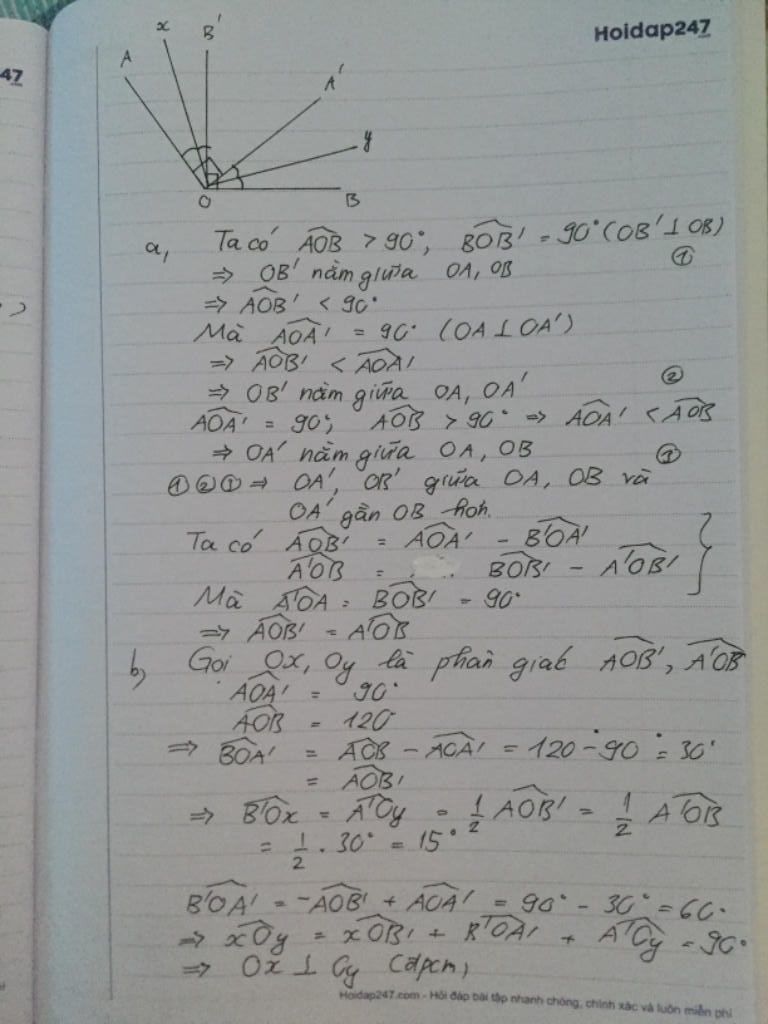 Hoidap247
47
x
B'
A
A'
y
O
B
a, Ta có AOB > 90°, BOB' = 90° (OB' ⊥ OB)
⇒ OB' nằm giữa OA, OB ①
⇒ AOB' < 90°
Mà AOA' = 90° (OA ⊥ OA')
⇒ AOB' < AOA'
⇒ OB' nằm giữa OA, OA' ②
AOA' = 90°, AOB > 90° ⇒ AOA' < AOB
⇒ OA' nằm giữa OA, OB
①②① ⇒ OA', OB' giữa OA, OB và
OA' gần OB hơn.
Ta có AOB' = AOA' - B'OA'
A'OB = BOB' - A'OB' }
Mà A'OA = BOB' = 90°
⇒ AOB' = A'OB
b, Gọi Ox, Oy là phân giác AOB', A'OB
AOA' = 90°
AOB = 120
⇒ BOA' = AOB - AOA' = 120° - 90° = 30°
= AOB'
⇒ B'Ox = A'Oy = 1/2 AOB' = 1/2 A'OB
= 1/2 . 30° = 15°
B'OA' = -AOB' + AOA' = 90° - 30° = 60°
⇒ xOy = xOB' + B'OA' + A'Oy = 90°
⇒ Ox ⊥ Oy (đpcm)
Hoidap247.com - Hỏi đáp bài tập nhanh chóng, chính xác và luôn miễn phí